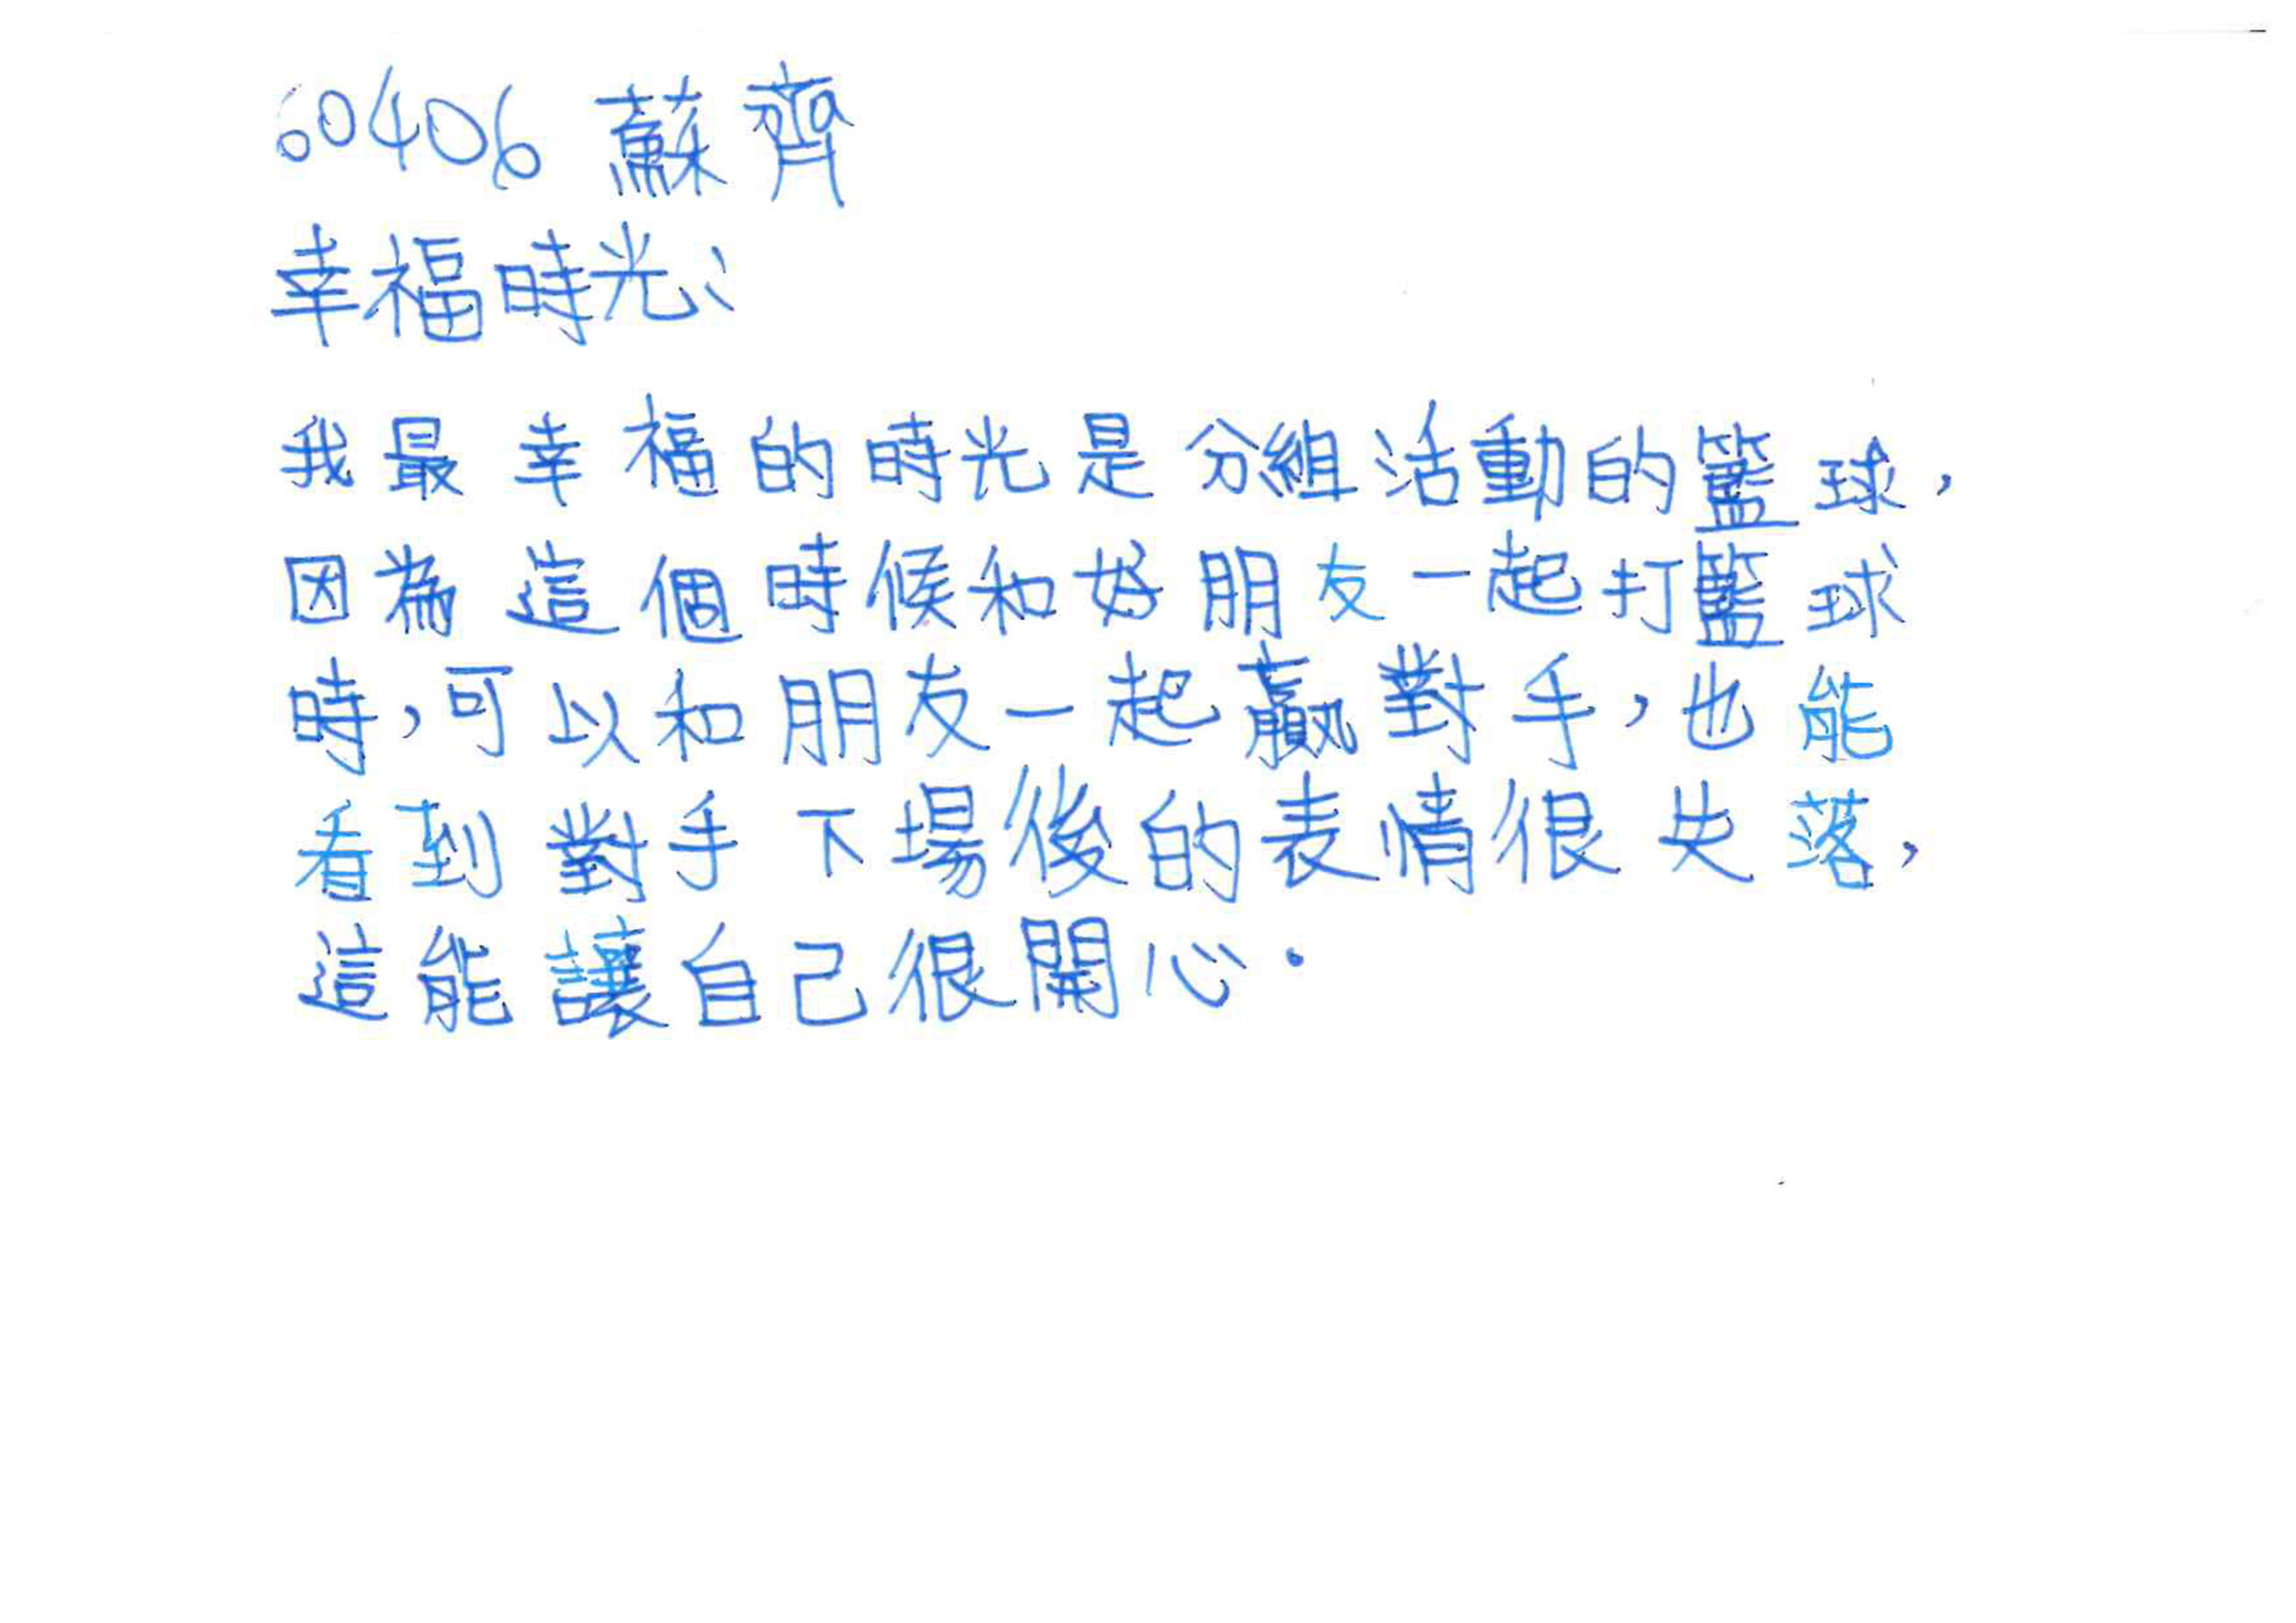 60406 蘇齊
幸福時光:
我最幸福的時光是分組活動的籃球,
因為這個時候和好朋友一起打籃球
時,可以和朋友一起贏對手,也能
看到對手下場後的表情很失落,
這能讓自己很開心.